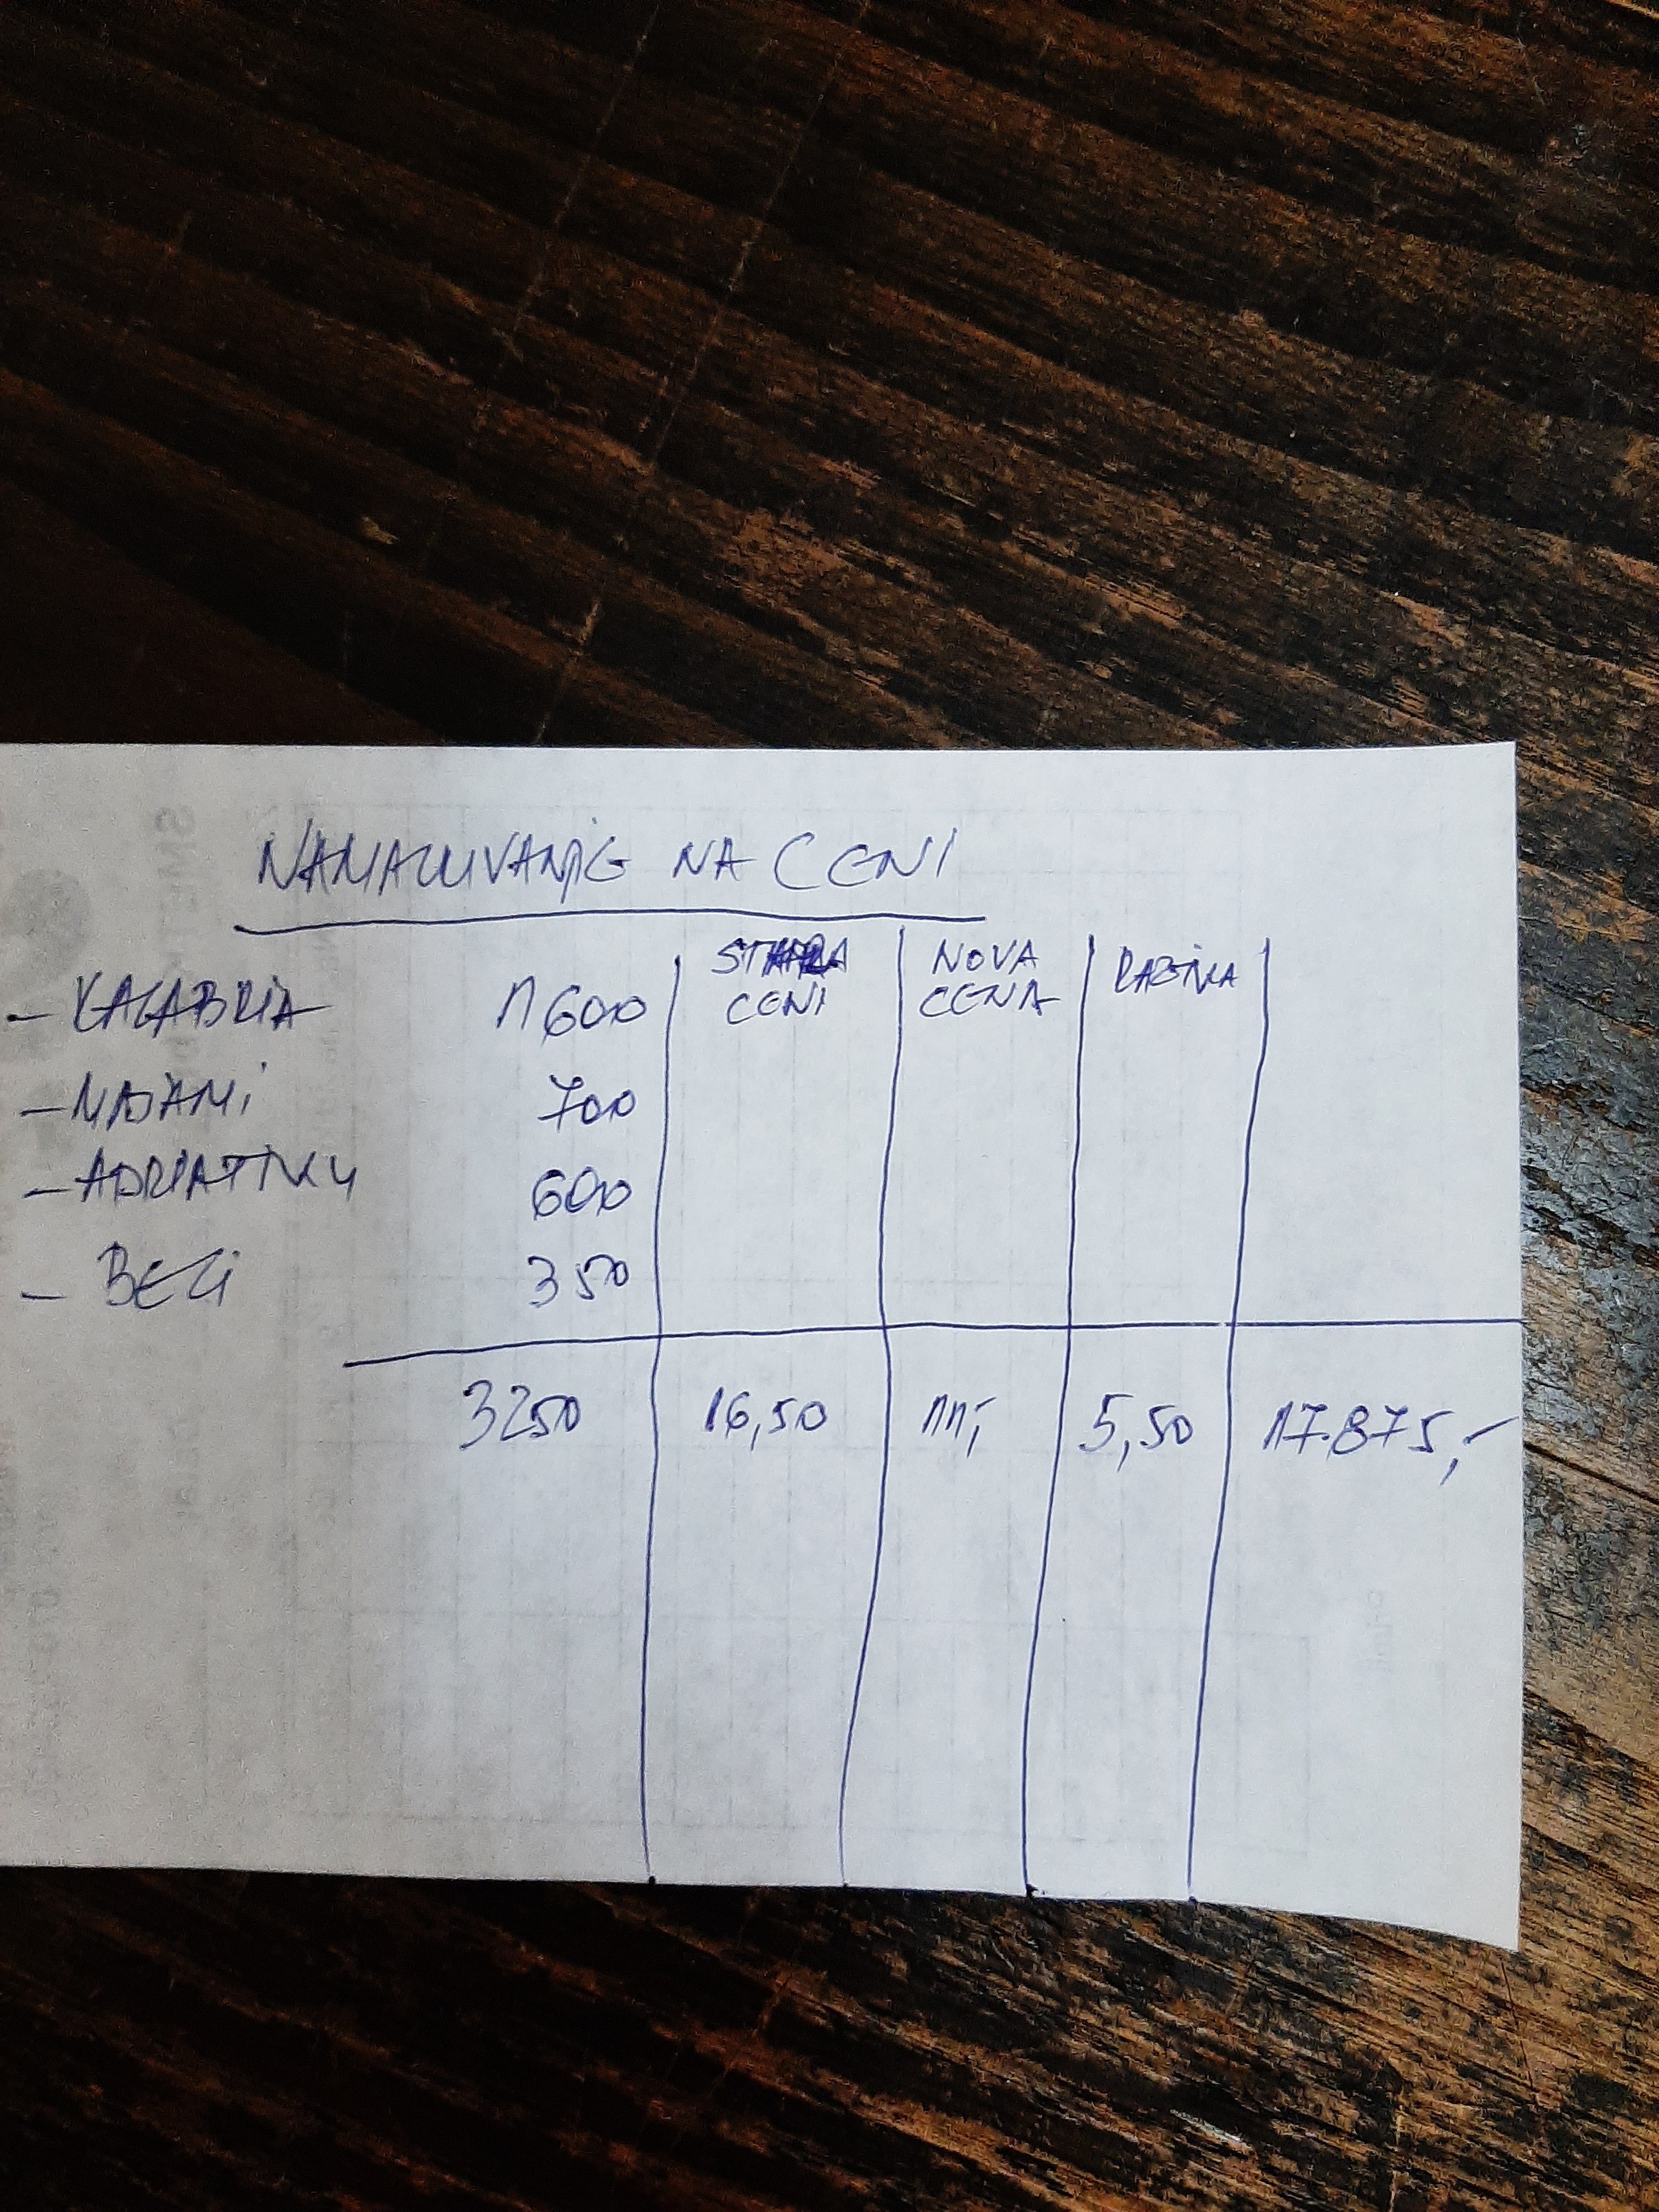 NAMALUVANJE NA CENI
STARA NOVA RAZLIKA
CENI CENA
- KALABRIA 1600
- MAJAMI 700
- ADRIATIK 4 600
- BECI 350
3250 16,50 11,- 5,50 17.875,-